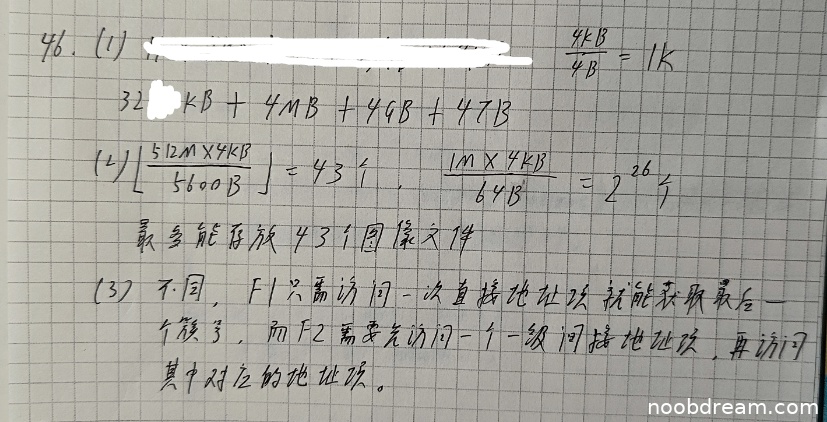 46. (1) 4KB/4B = 1K
32 KB + 4MB + 4GB + 4TB
(2) ⌊512M×4KB/5600B⌋ = 43个, 1M×4KB/64B = 2^26个
最多能存放43个图像文件
(3) 不同, F1只需访问一次直接地址项就能获取最后一
个簇号, 而F2需要先访问一个一级间接地址项, 再访问
其中对应的地址项。
noobdream.com